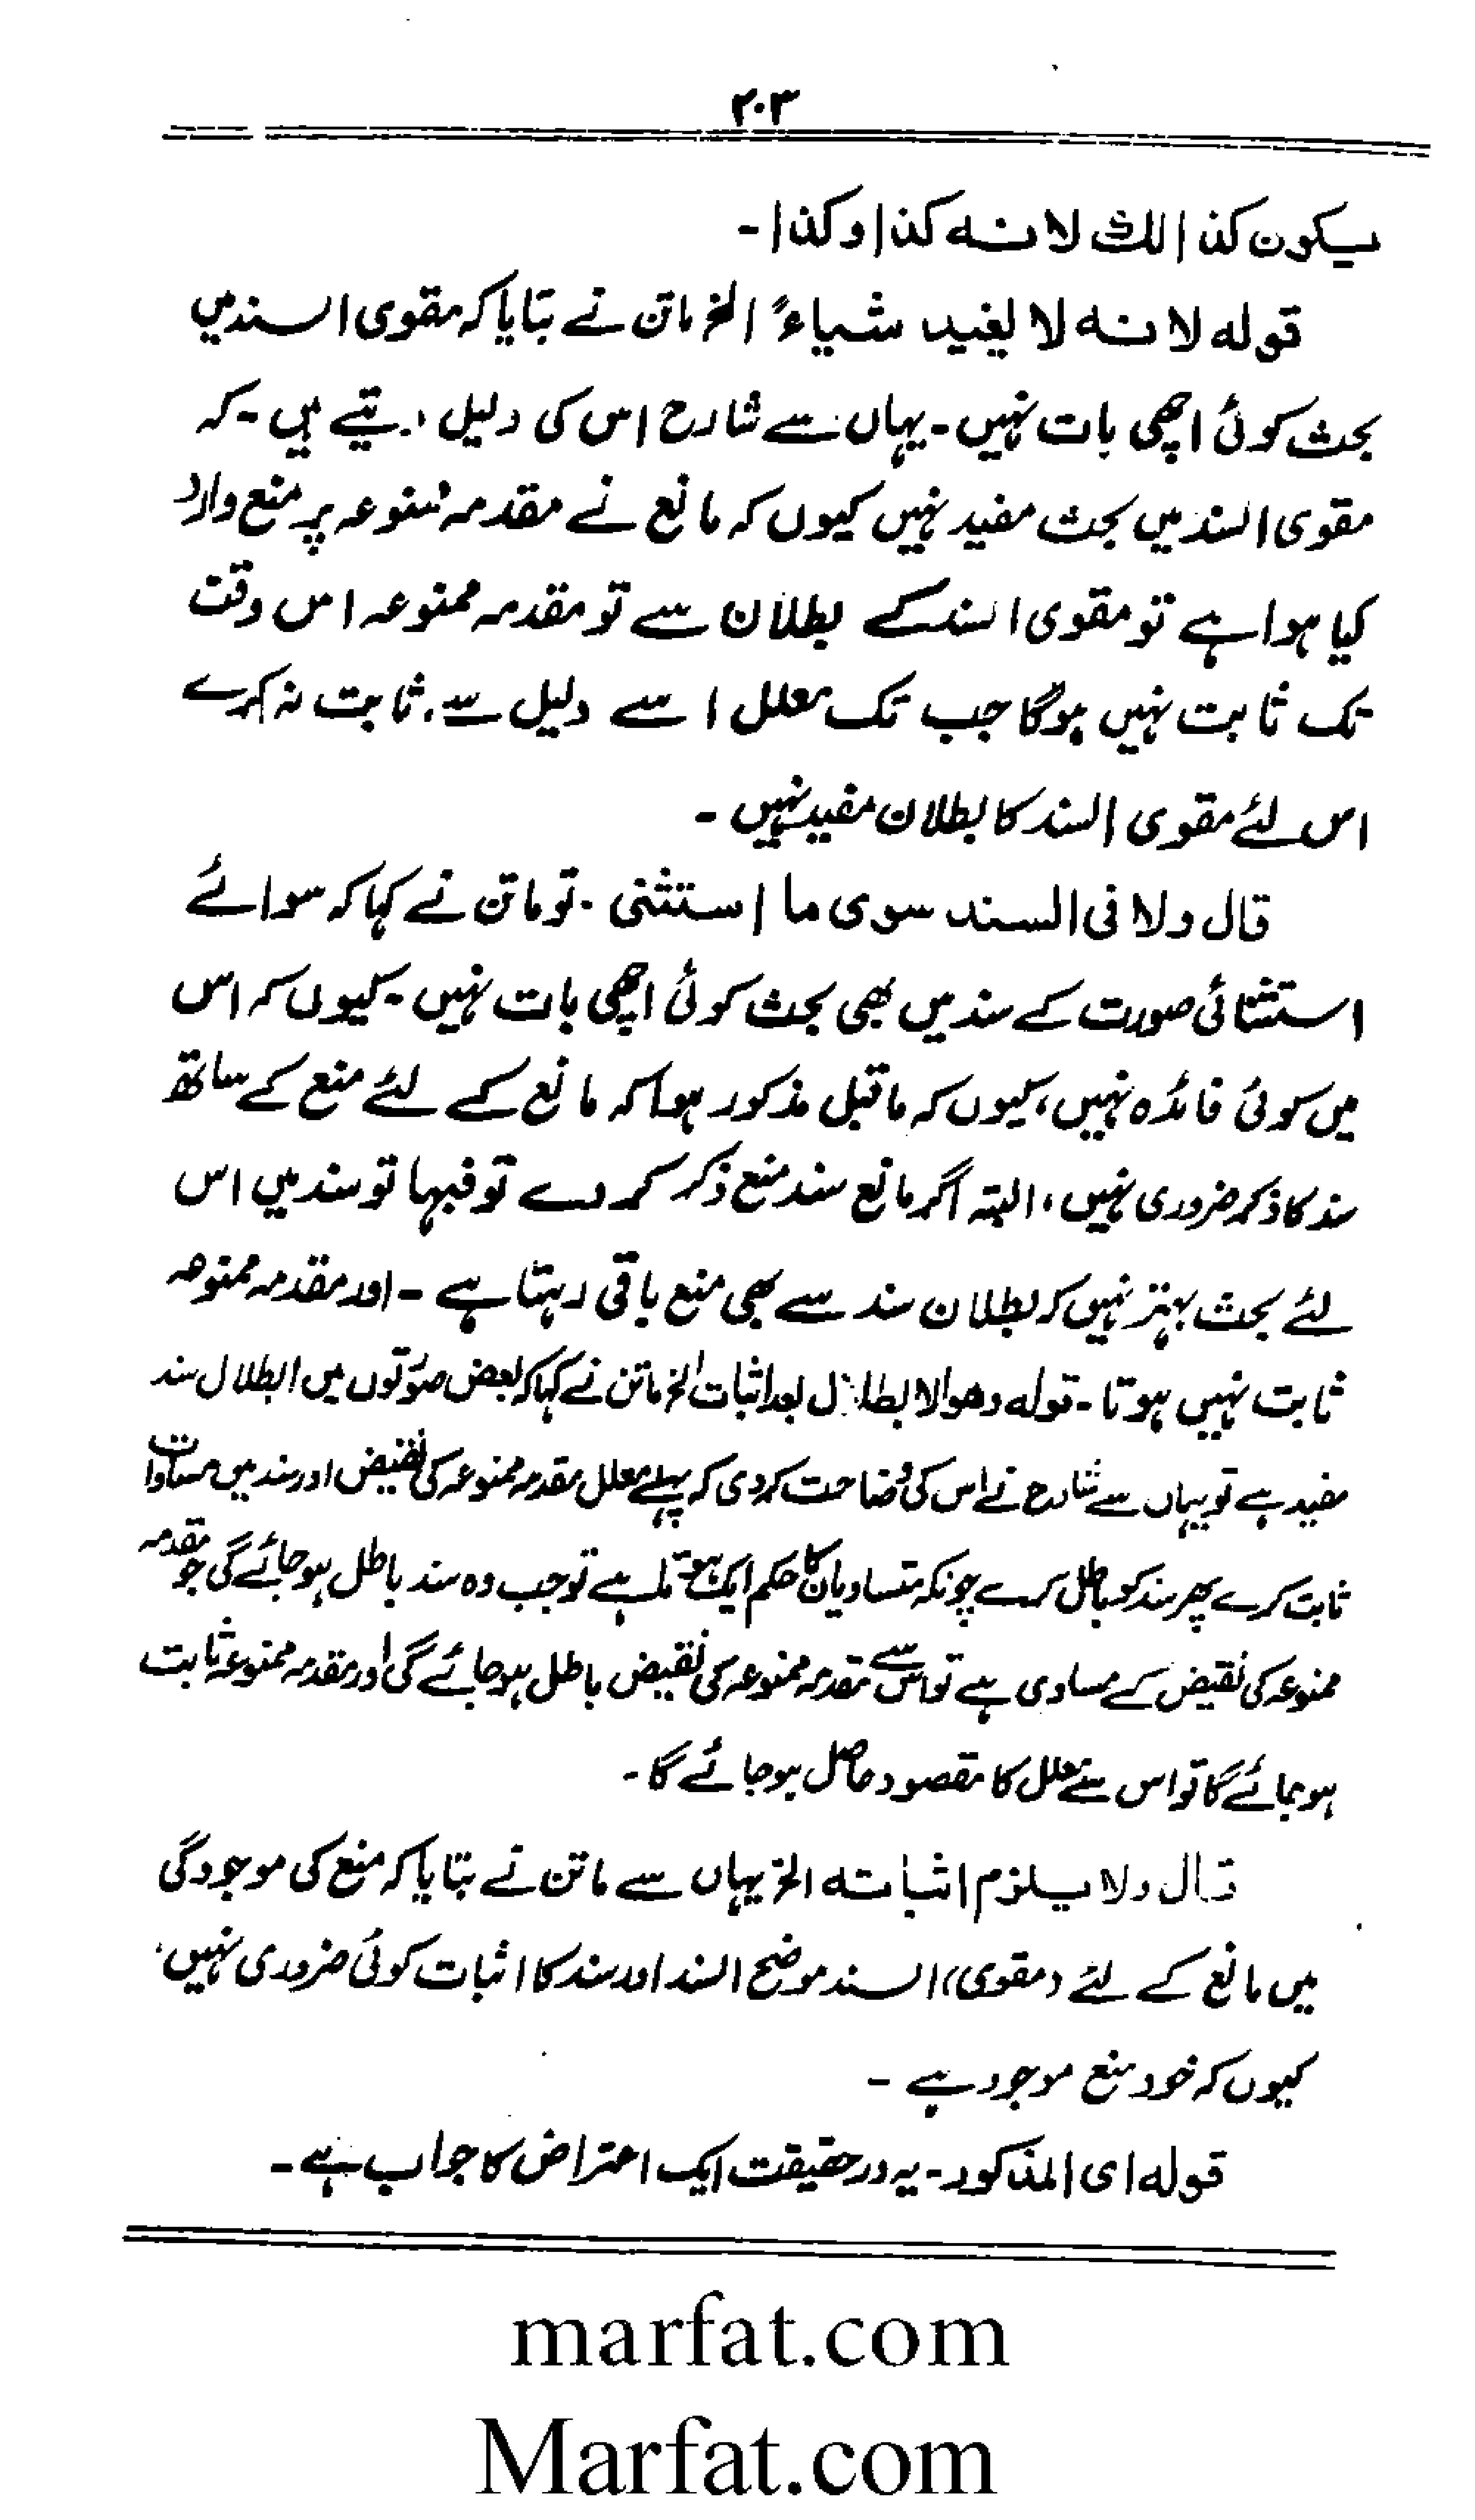 ۲۰۳
یکون کذالک لانہ کذا وکذا۔
قولہ لانہ لا یفید شیاءً الخ ماتن نے بتایا کہ مقوی السند میں
بحث کوئی اچھی بات نہیں۔ یہاں سے شارح اس کی دلیل دیتے ہیں۔ کہ
مقوی السند میں بحث مفید نہیں کیوں کہ مانع نے مقدمہ ممنوعہ پر منع وارد
کیا ہوا ہے تو مقوی السند کے بطلان سے تو مقدمہ ممنوعہ اس وقت
تک ثابت نہیں ہوگا جب تک معلل اسے دلیل سے ثابت نہ کرے
اس لئے مقوی السند کا بطلان مفید نہیں۔
قال ولا فی السند سوی ما استثنی۔ تو ماتن نے کہا کہ سوائے
استثنائی صورت کے سند میں بھی بحث کوئی اچھی بات نہیں۔ کیوں کہ اس
میں کوئی فائدہ نہیں، کیوں کہ ماقبل مذکور ہوا کہ مانع کے لئے منع کے ساتھ
سند کا ذکر ضروری نہیں، البتہ اگر مانع سند منع ذکر کر دے تو فبہا تو سند میں اس
لئے بحث بہتر نہیں کہ بطلان سند سے بھی منع باقی رہتا ہے۔ اور مقدمہ ممنوعہ
ثابت نہیں ہوتا۔ قولہ وھو الابطال بعد اثبات الخ ماتن نے کہا کہ بعض صورتوں میں ابطال سند
مفید ہے تو یہاں سے شارح نے اس کی وضاحت کردی کہ پہلے معلل مقدمہ ممنوعہ کی نقیض اور سند میں مساوات
ثابت کرے پھر سند کو باطل کرے چونکہ متساویان کا حکم ایک ہوتا ہے تو جب وہ سند باطل ہو جائے گی جو مقدمہ
ممنوعہ کی نقیض کے مساوی ہے تو اس سے مقدمہ ممنوعہ کی نقیض باطل ہو جائے گی اور مقدمہ ممنوعہ ثابت
ہو جائے گا تو اس سے معلل کا مقصود حاصل ہو جائے گا۔
قال ولا یلزم اثباتہ الخ یہاں سے ماتن نے بتایا کہ منع کی موجودگی
میں مانع کے لئے (مقوی) السند موضح السند اور سند کا اثبات کوئی ضروری نہیں،
کیوں کہ خود منع موجود ہے۔
قولہ ای المذکور۔ یہ درحقیقت ایک اعتراض کا جواب ہے۔
marfat.com
Marfat.com